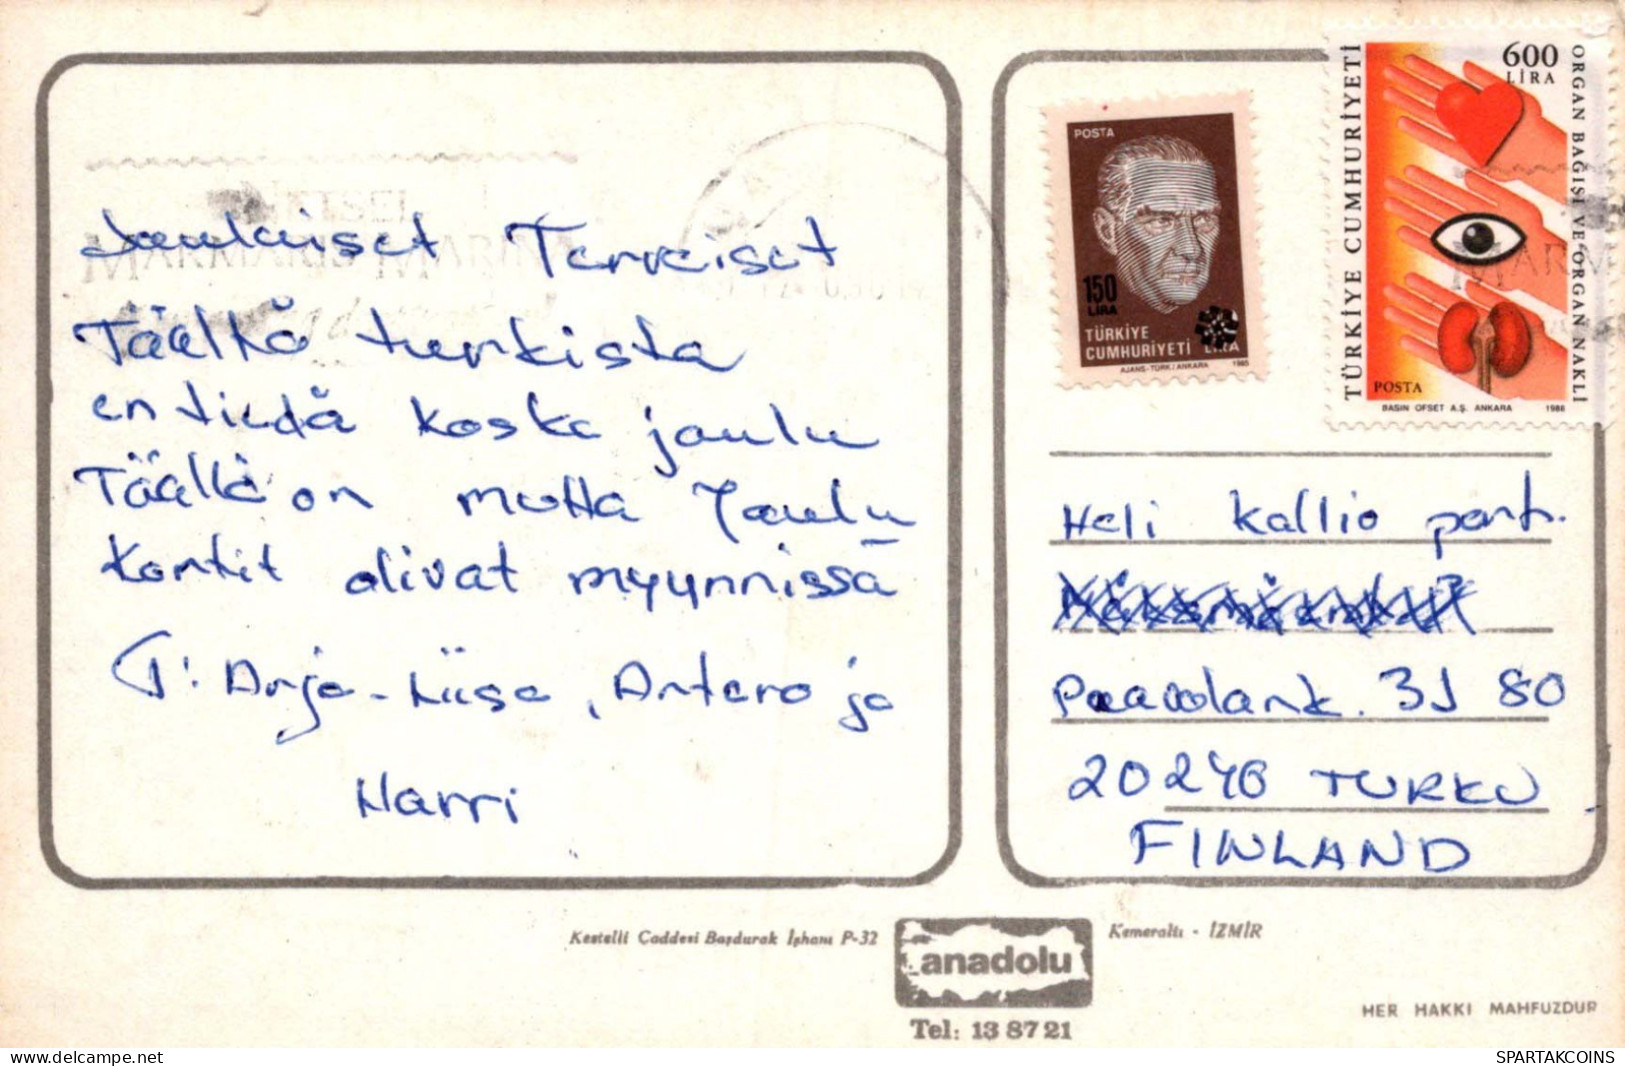 Jouluiset Terveiset
Täältä turkista
en tiedä koska joulu
Täällä on mutta Joulu
kortit olivat myynnissä
T: Arja-Liisa, Antero ja
Harri
MARMARIS MARINA
POSTA
150
LIRA
TÜRKİYE
CUMHURİYETİ LİRA
AJANS-TÜRK/ANKARA 1985
TÜRKİYE CUMHURİYETİ
600
LİRA
ORGAN BAĞIŞI VE ORGAN NAKLİ
POSTA
BASIN OFSET A.Ş. ANKARA 1988
MARM
Heli Kallio perh.
Paavolank. 3J 80
20240 TURKU
FINLAND
Kestelli Caddesi Başdurak İşhanı P-32
anadolu
Kemeraltı - İZMİR
Tel: 13 87 21
HER HAKKI MAHFUZDUR
www.delcampe.net/en
SPARTAKCOINS